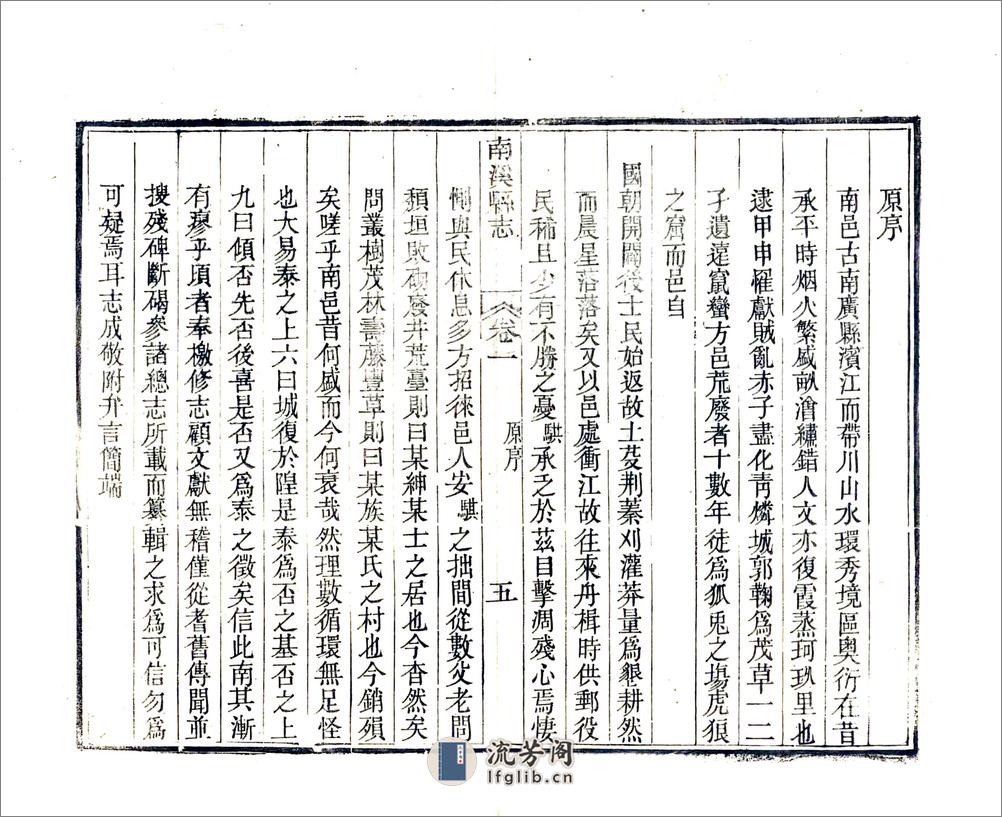 原序
南邑古南廣縣濱江而帶川山水環秀境區奧衍在昔
承平時烟火繁盛畝澮繡錯人文亦復霞蒸珂玖里也
逮甲申罹獻賊亂赤子盡化青燐城郭鞠為茂草一二
孑遺遠竄蠻方邑荒廢者十數年徒為狐兎之塲虎狼
之窟而邑自
國朝開闢後士民始返故土芟荆蓁刈灌莽量為墾耕然
而晨星落落矣又以邑處衝江故往來舟楫時供郵役
民稀且少有不勝之憂騏承乏於茲目擊凋殘心焉悽
惻與民休息多方招徠邑人安騏之拙間從數父老問
頽垣敗砌廢井荒臺則曰某紳某士之居也今杳然矣
問叢樹茂林壽藤豐草則曰某族某氏之村也今銷殞
矣嗟乎南邑昔何盛而今何衰哉然理數循環無足怪
也大易泰之上六曰城復於隍是泰為否之基否之上
九曰傾否先否後喜是否又為泰之徵矣信此南其漸
有瘳乎頃者奉檄修志顧文獻無稽僅從耆舊傳聞並
搜殘碑斷碣參諸總志所載而纂輯之求為可信勿為
可疑焉耳志成敬附弁言簡端
南溪縣志
卷一
原序
五
流芳阁
lfglib.cn